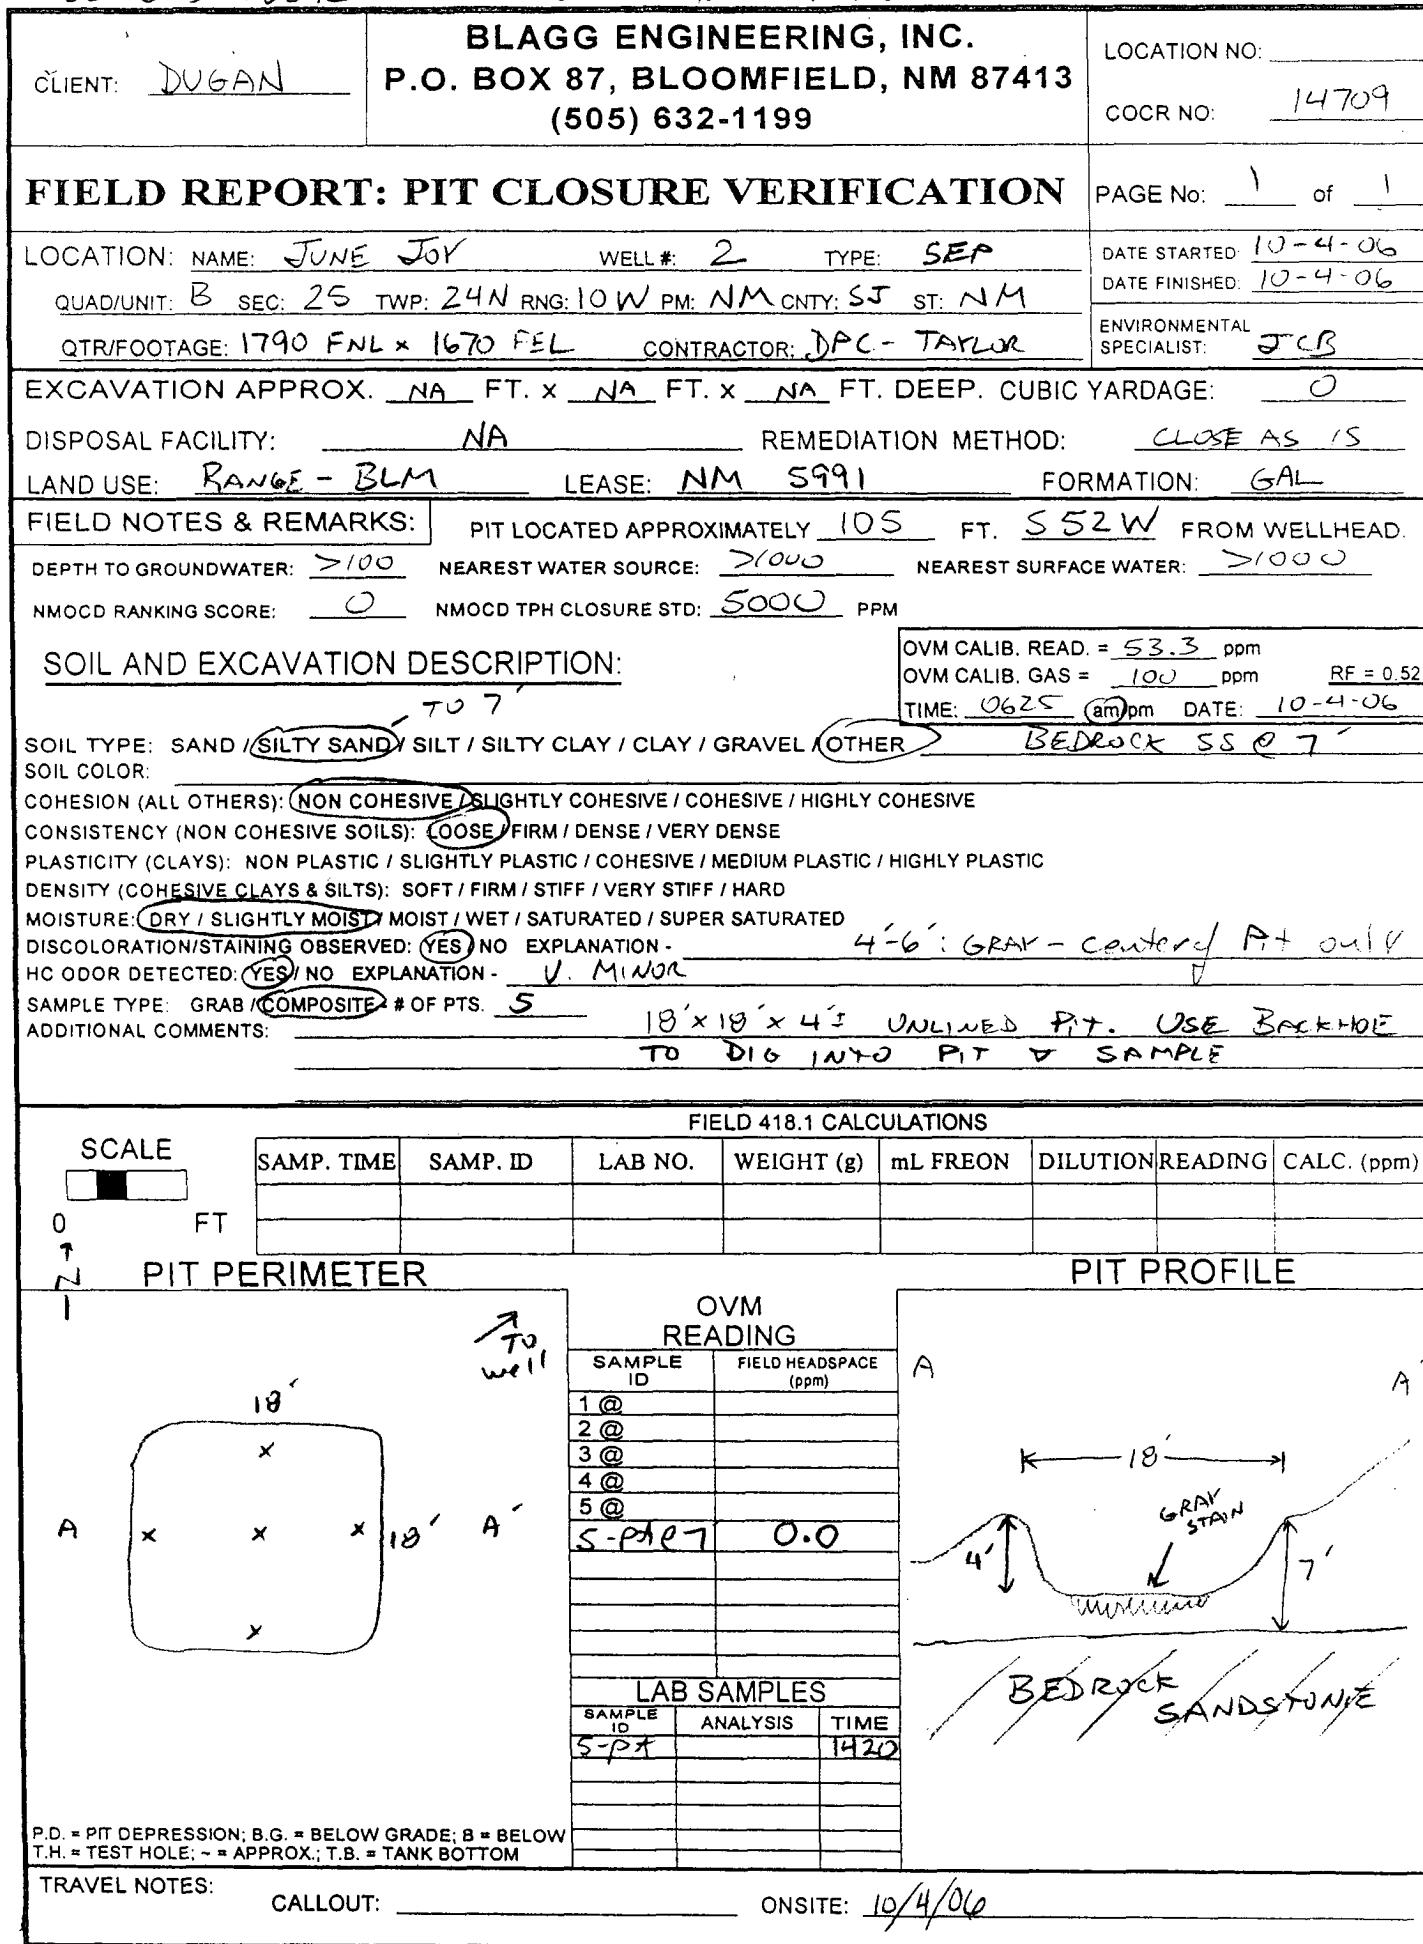 CLIENT: DUGAN
BLAGG ENGINEERING, INC.
P.O. BOX 87, BLOOMFIELD, NM 87413
(505) 632-1199
LOCATION NO:
COCR NO: 14709
FIELD REPORT: PIT CLOSURE VERIFICATION
PAGE No: 1 of 1
LOCATION: NAME: JUNE JOY WELL #: 2 TYPE: SEP
QUAD/UNIT: B SEC: 25 TWP: 24N RNG: 10W PM: NM CNTY: SJ ST: NM
QTR/FOOTAGE: 1790 FNL x 1670 FEL CONTRACTOR: DPC - TAYLOR
DATE STARTED: 10-4-06
DATE FINISHED: 10-4-06
ENVIRONMENTAL
SPECIALIST: JCB
EXCAVATION APPROX. NA FT. x NA FT. x NA FT. DEEP. CUBIC YARDAGE: 0
DISPOSAL FACILITY: NA REMEDIATION METHOD: CLOSE AS IS
LAND USE: RANGE - BLM LEASE: NM 5991 FORMATION: GAL
FIELD NOTES & REMARKS: PIT LOCATED APPROXIMATELY 105 FT. S 52 W FROM WELLHEAD.
DEPTH TO GROUNDWATER: >100 NEAREST WATER SOURCE: >1000 NEAREST SURFACE WATER: >1000
NMOCD RANKING SCORE: 0 NMOCD TPH CLOSURE STD: 5000 PPM
SOIL AND EXCAVATION DESCRIPTION:
OVM CALIB. READ. = 53.3 ppm
OVM CALIB. GAS = 100 ppm RF = 0.52
TIME: 0625 am/pm DATE: 10-4-06
TO 7'
SOIL TYPE: SAND / SILTY SAND / SILT / SILTY CLAY / CLAY / GRAVEL / OTHER BEDROCK SS @ 7'
SOIL COLOR:
COHESION (ALL OTHERS): NON COHESIVE / SLIGHTLY COHESIVE / COHESIVE / HIGHLY COHESIVE
CONSISTENCY (NON COHESIVE SOILS): LOOSE / FIRM / DENSE / VERY DENSE
PLASTICITY (CLAYS): NON PLASTIC / SLIGHTLY PLASTIC / COHESIVE / MEDIUM PLASTIC / HIGHLY PLASTIC
DENSITY (COHESIVE CLAYS & SILTS): SOFT / FIRM / STIFF / VERY STIFF / HARD
MOISTURE: DRY / SLIGHTLY MOIST / MOIST / WET / SATURATED / SUPER SATURATED
DISCOLORATION/STAINING OBSERVED: YES / NO EXPLANATION - 4'-6': GRAY - center of Pit only
HC ODOR DETECTED: YES / NO EXPLANATION - V. MINOR
SAMPLE TYPE: GRAB / COMPOSITE - # OF PTS. 5
ADDITIONAL COMMENTS: 18' x 18' x 4'± UNLINED PIT. USE BACKHOE
TO DIG INTO PIT & SAMPLE
FIELD 418.1 CALCULATIONS
SCALE
0 FT
SAMP. TIME SAMP. ID LAB NO. WEIGHT (g) mL FREON DILUTION READING CALC. (ppm)
N
PIT PERIMETER
PIT PROFILE
TO
well
18'
A
18'
A'
OVM
READING
SAMPLE ID FIELD HEADSPACE (ppm)
1 @
2 @
3 @
4 @
5 @
5-pt @ 7 0.0
LAB SAMPLES
SAMPLE ID ANALYSIS TIME
5-pt 1420
A A'
18'
GRAY
STAIN
4'
7'
BEDROCK
SANDSTONE
P.D. = PIT DEPRESSION; B.G. = BELOW GRADE; B = BELOW
T.H. = TEST HOLE; ~ = APPROX.; T.B. = TANK BOTTOM
TRAVEL NOTES:
CALLOUT: ONSITE: 10/4/06